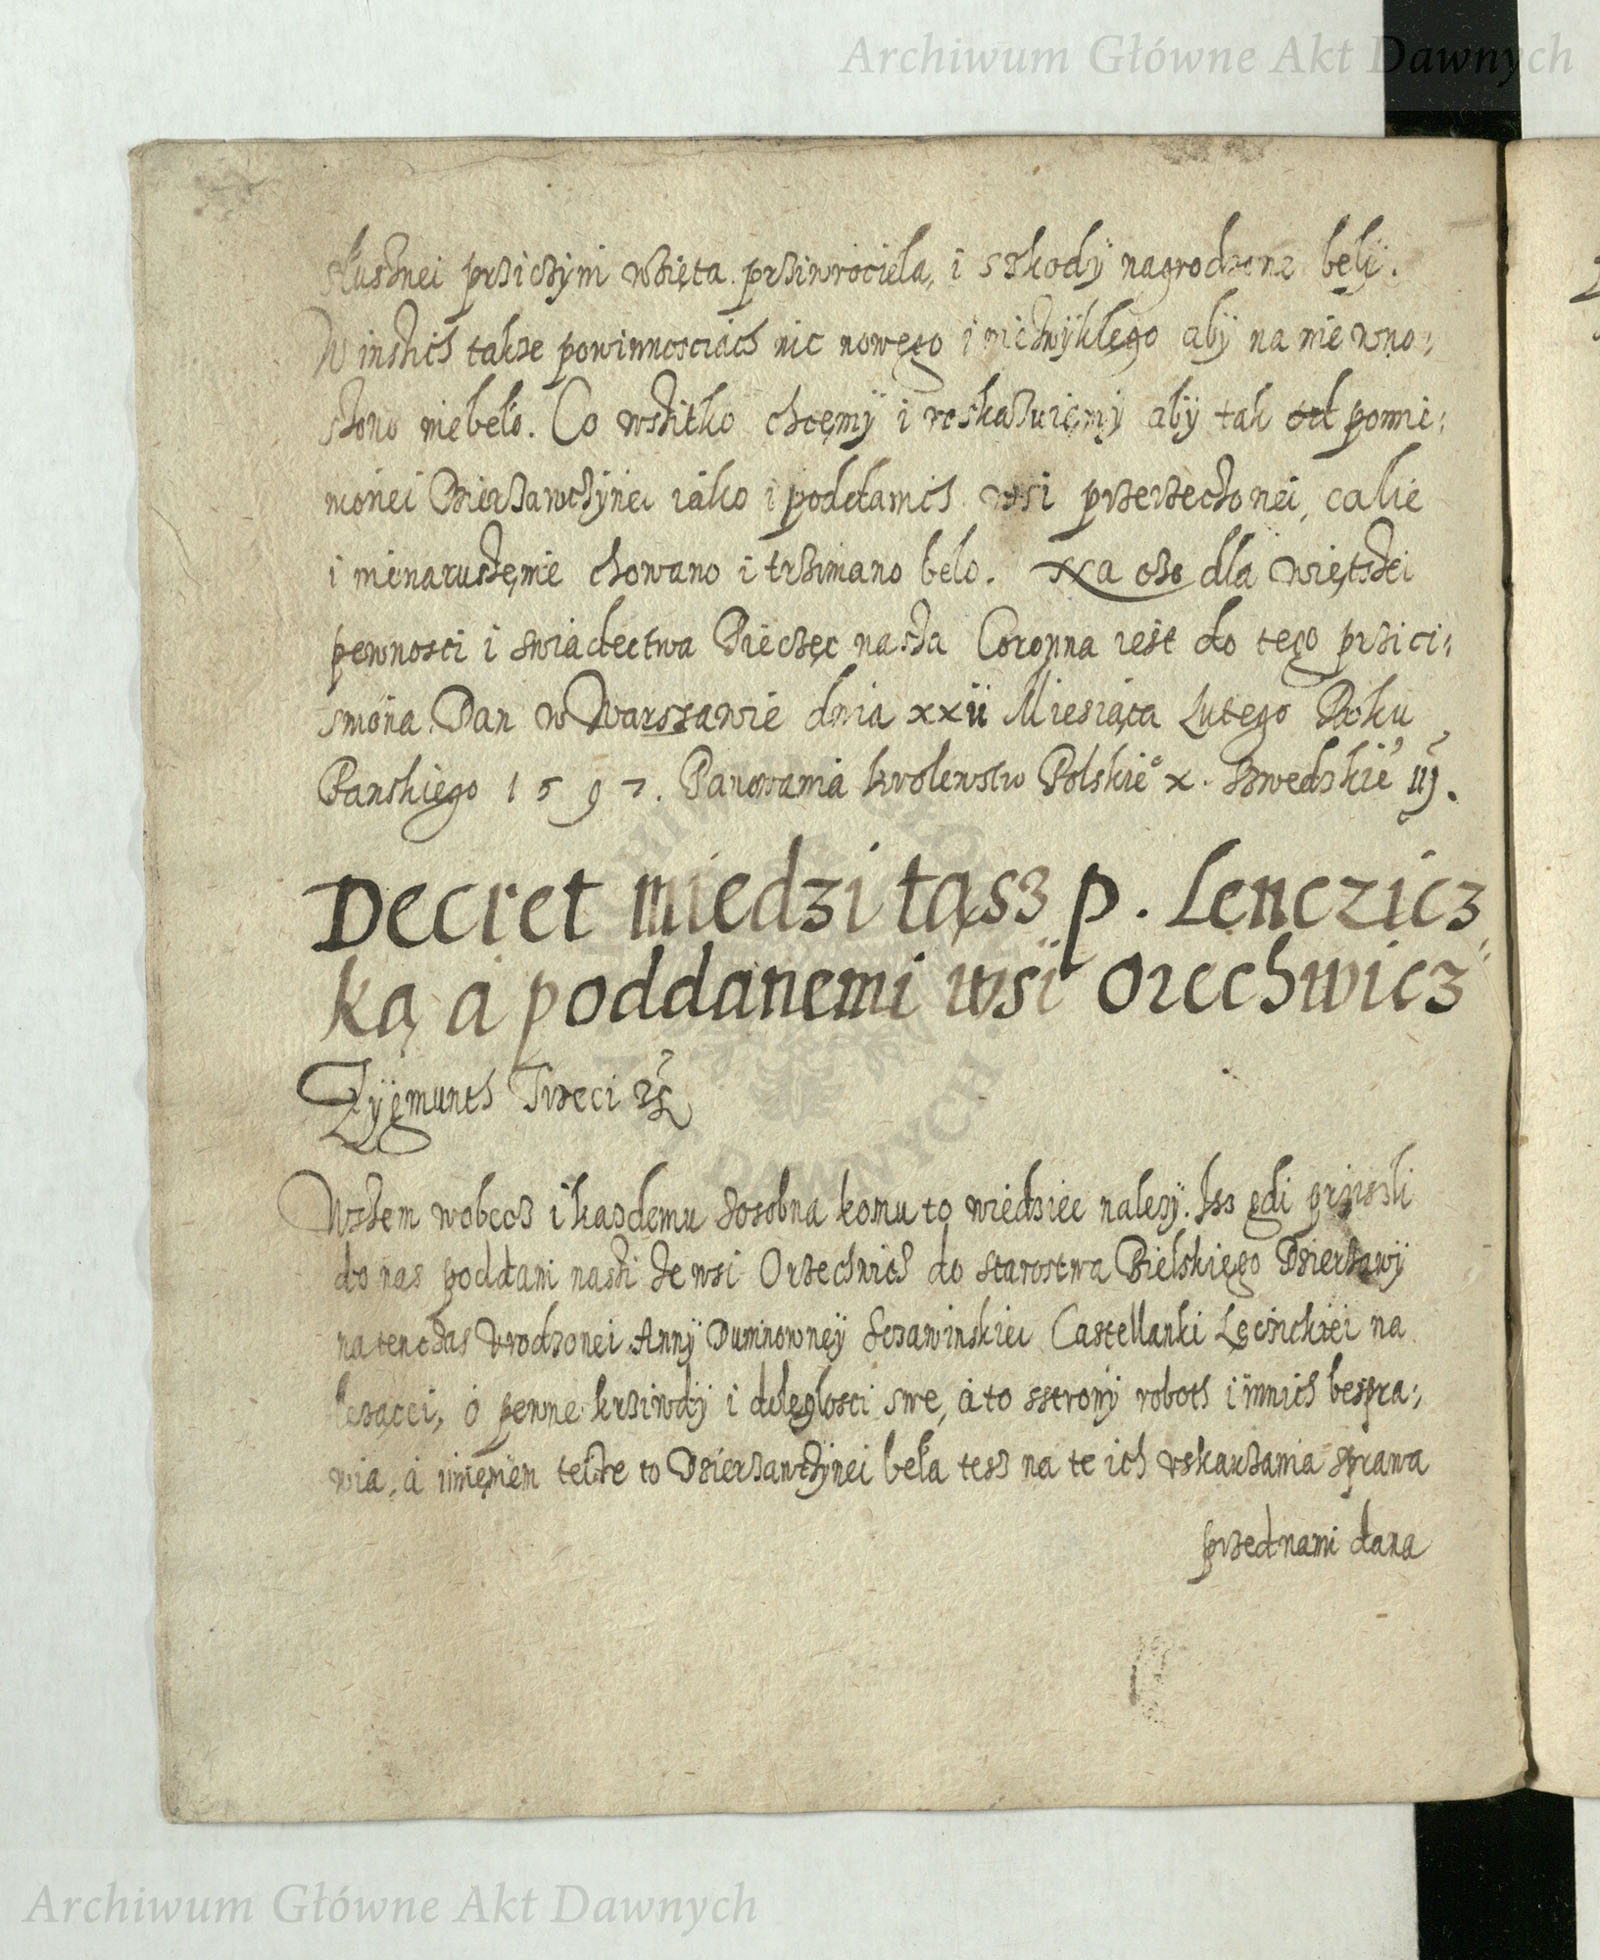 Archiwum Główne Akt Dawnych
słusznei prziczyni wzięta prziwrociela, i szkody nagrodzone bely.
W inszich takze powinnosciach nic nowego i niezwyklego aby na nie wno:
szono niebeło. Co wszitko chcęmÿ i roskazuięmÿ abÿ tak od pomie:
nionei Dzierzawczÿnei iáko i poddanich wsi przerzeczonei, calie
i nienaruszęnie chowano i trzimano belo. dla więtszei
pewnosci i swiadectwa Pieczęc nasza Coronna iest do tego przici:
sniona. Dan w Warszawie dnia xxii Miesiąca Lutego Roku
Panskiego 1597. Panowania krolewstw Polskieº x. Szwedskieº iij.
Decret miedzi tąsz p. Lenczicz
ką á poddanemi wsi Orechwicz
Zÿgmunth Trzeci
Wszem wobecz i kazdemu zosobna komu to wiedziec nalezÿ. Isz gdi przisli
do nas poddani naszi ze wsi Orzechwicz do starostwa Bielskiego Dzierzawÿ
natenczas Urodzonei Annÿ Duninownęÿ Sczawinskiei Castellanki Lęczickiei na
lezącei, ó pewne krziwdÿ i dolęglosci swe, á to sstronÿ roboth i innich bespra:
wia, á imięniem teize to Dzierzawczÿnei beła tesz na te ich uskarzania sprawa
przednami dana
Archiwum Główne Akt Dawnych